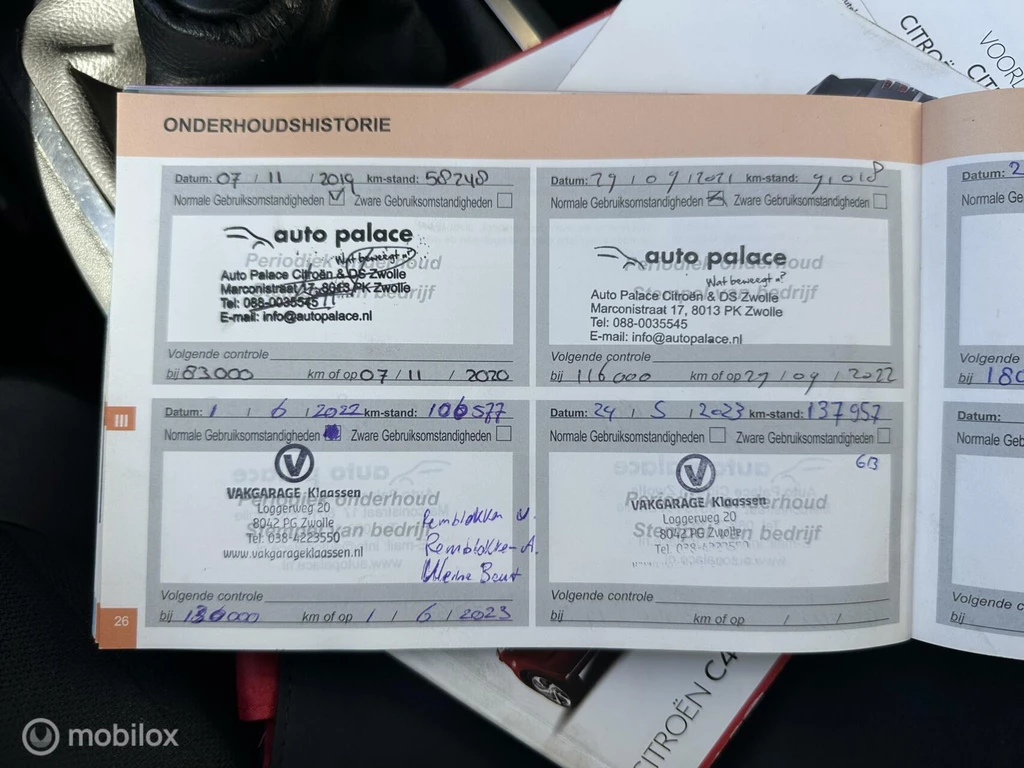 VOORL
CITROËN
CITROË
ONDERHOUDSHISTORIE
Datum: 07 / 11 / 2019 km-stand: 58248
Normale Gebruiksomstandigheden Zware Gebruiksomstandigheden
auto palace
Wat beweegt u?
Periodiek onderhoud
Auto Palace Citroën & DS Zwolle
Marconistraat 17, 8013 PK Zwolle
Tel: 088-0035545
E-mail: info@autopalace.nl
Volgende controle
bij 83000 km of op 07 / 11 / 2020
Datum: 29 / 09 / 2021 km-stand: 91018
Normale Gebruiksomstandigheden Zware Gebruiksomstandigheden
auto palace
Wat beweegt u?
Periodiek onderhoud
Stempel van bedrijf
Auto Palace Citroën & DS Zwolle
Marconistraat 17, 8013 PK Zwolle
Tel: 088-0035545
E-mail: info@autopalace.nl
Volgende controle
bij 116000 km of op 29 / 09 / 2022
Datum: 2
Normale Ge
Volgende
bij 180
III
Datum: 1 / 6 / 2022 km-stand: 106577
Normale Gebruiksomstandigheden Zware Gebruiksomstandigheden
VAKGARAGE Klaassen
Periodiek onderhoud
Loggerweg 20
8042 PG Zwolle
Stempel van bedrijf
Tel. 038-4223550
www.vakgarageklaassen.nl
Remblokken V.
Remblokken A.
Kleine Beurt
Volgende controle
bij 136000 km of op 1 / 6 / 2023
Datum: 24 / 5 / 2023 km-stand: 137957
Normale Gebruiksomstandigheden Zware Gebruiksomstandigheden
GB
VAKGARAGE Klaassen
Periodiek onderhoud
Loggerweg 20
8042 PG Zwolle
Stempel van bedrijf
Tel. 038-4223550
Volgende controle
bij km of op / /
Datum:
Normale G
Volgende c
bij
26
CITROËN C4
mobilox